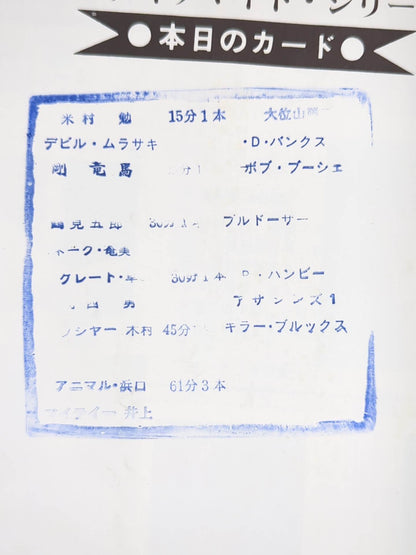 ・シリー
本日のカード
米村 勉 15分1本 大位山
デビル・ムラサキ ・D・バンクス
剛 竜馬 分1 ボブ・ブーシェ
鶴見五郎 30分1本 ブルドーザー
ホーク・
グレート・ 30分1本 ・ハンビー
男 1
ラッシャー 木村 45分 キラー・ブルックス
アニマル・浜口 61分3本
マイティー 井上